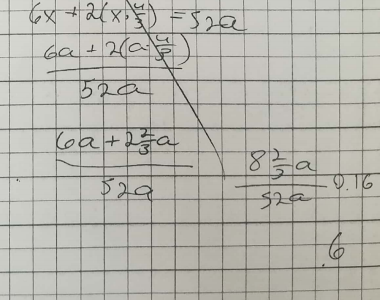 6x + 2(x·4/3) = 52a
6a + 2(a·4/3)
52a
6a + 2 2/3 a
52a
8 2/3 a
52a
0.16
.6